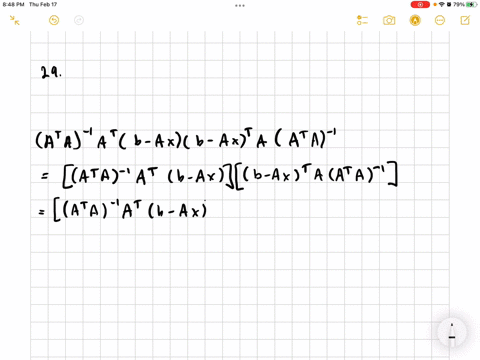 8:48 PM Thu Feb 17
79%
29.
(AᵀA)⁻¹ Aᵀ (b-Ax)(b-Ax)ᵀ A (AᵀA)⁻¹
= [(AᵀA)⁻¹ Aᵀ (b-Ax)][(b-Ax)ᵀ A (AᵀA)⁻¹]
= [(AᵀA)⁻¹ Aᵀ (b-Ax)